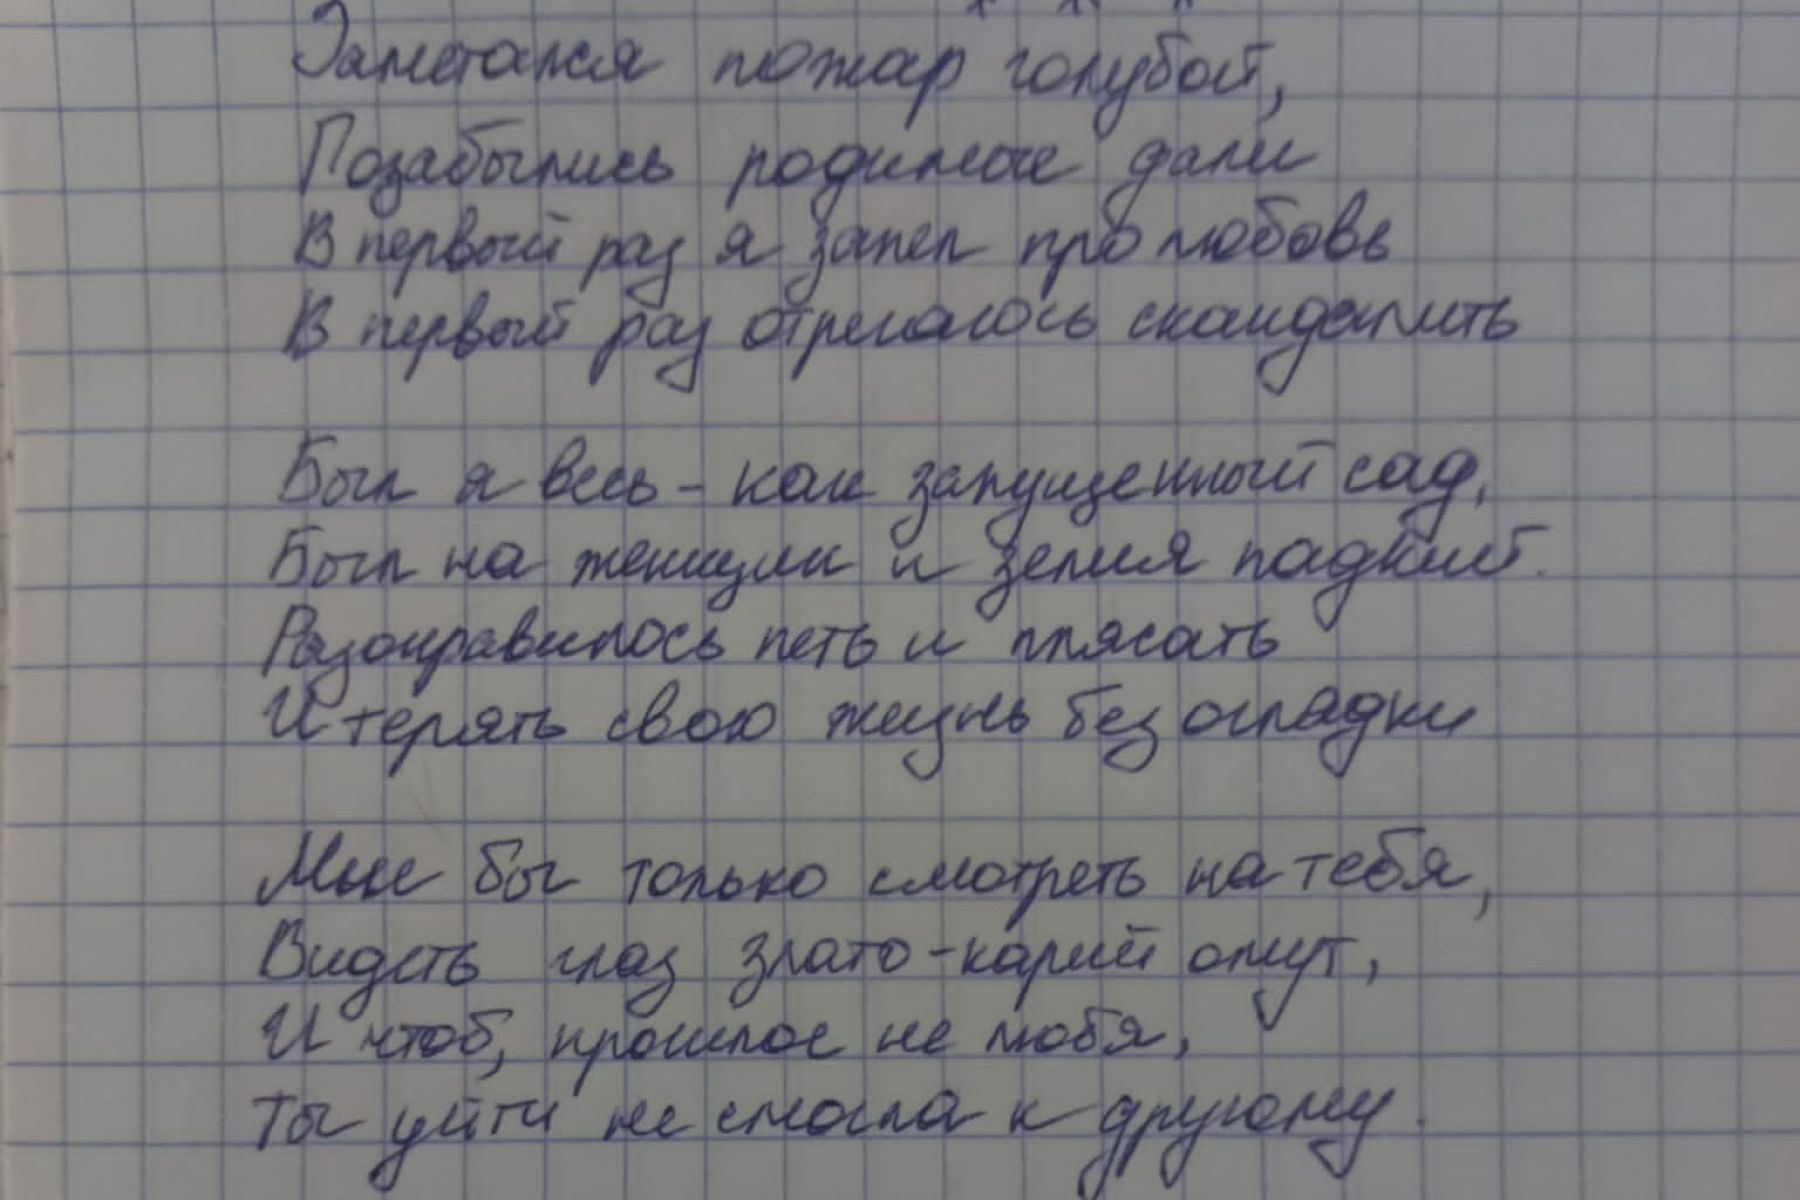 Заметался пожар голубой,
Позабылись родимые дали
В первый раз я запел про любовь
В первый раз отрекаюсь скандалить
Был я весь - как запущенный сад,
Был на женщин и зелия падкий.
Разонравилось петь и плясать
И терять свою жизнь без оглядки
Мне бы только смотреть на тебя,
Видеть глаз злато-карий омут,
И чтоб, прошлое не любя,
Ты уйти не смогла к другому.